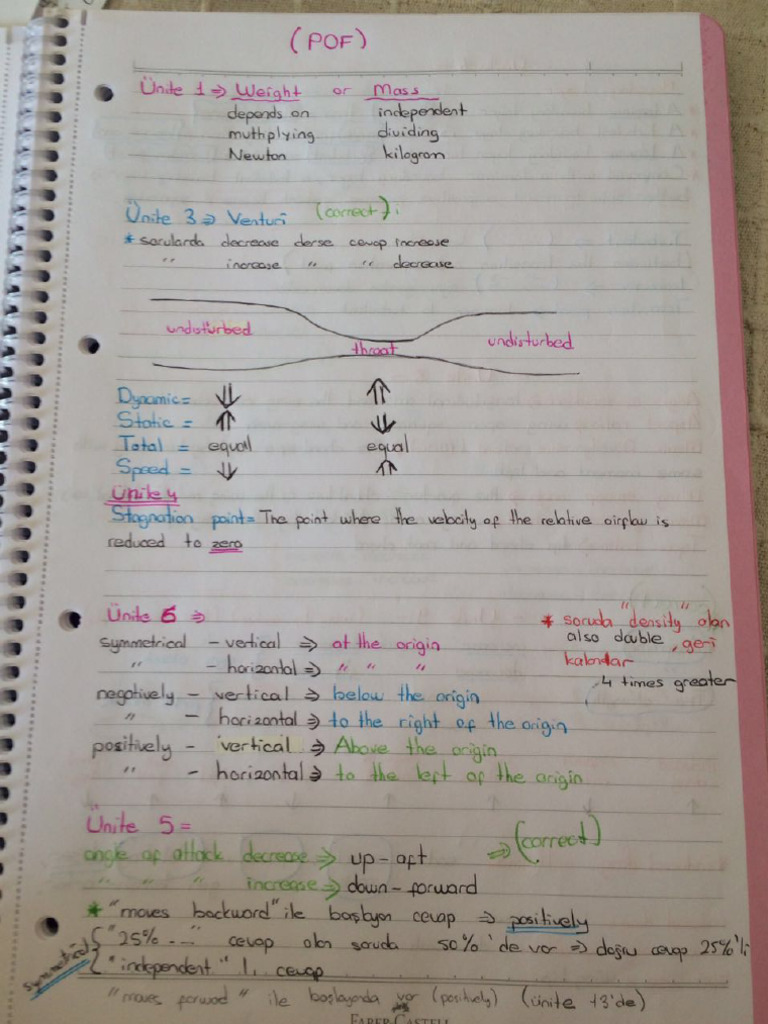 (POF)
Ünite 1 ⇒ Weight or Mass
depends on independent
muthplying dividing
Newton kilogram
Ünite 3 ⇒ Venturi (correct).
* sorularda decrease derse cevap increase
" increase " " decrease
undisturbed throat undisturbed
Dynamic = ⇓ ⇑
Static = ⇑ ⇓
Total = equal equal
Speed = ⇓ ⇑
Ünite 4
Stagnation point = The point where the velocity of the relative airflow is
reduced to zero
Ünite 6 ⇒
symmetrical - vertical ⇒ at the origin
" - horizontal ⇒ " " "
negatively - vertical ⇒ below the origin
" - horizontal ⇒ to the right of the origin
positively - vertical ⇒ Above the origin
" - horizontal ⇒ to the left of the origin
* soruda "density" olan
also double, geri
kalanlar
4 times greater
Ünite 5 =
angle of attack decrease ⇒ up - aft ⇒ (correct)
" " " increase ⇒ down - forward
* "moves backward" ile başlayan cevap ⇒ positively
symmetrical { "25% ---" cevap olan soruda 50%'de var ⇒ doğru cevap 25%'li
"independent" 1. cevap
"moves forward" ile başlayanda var (positively) (Ünite 13'de)
FABER-CASTELL